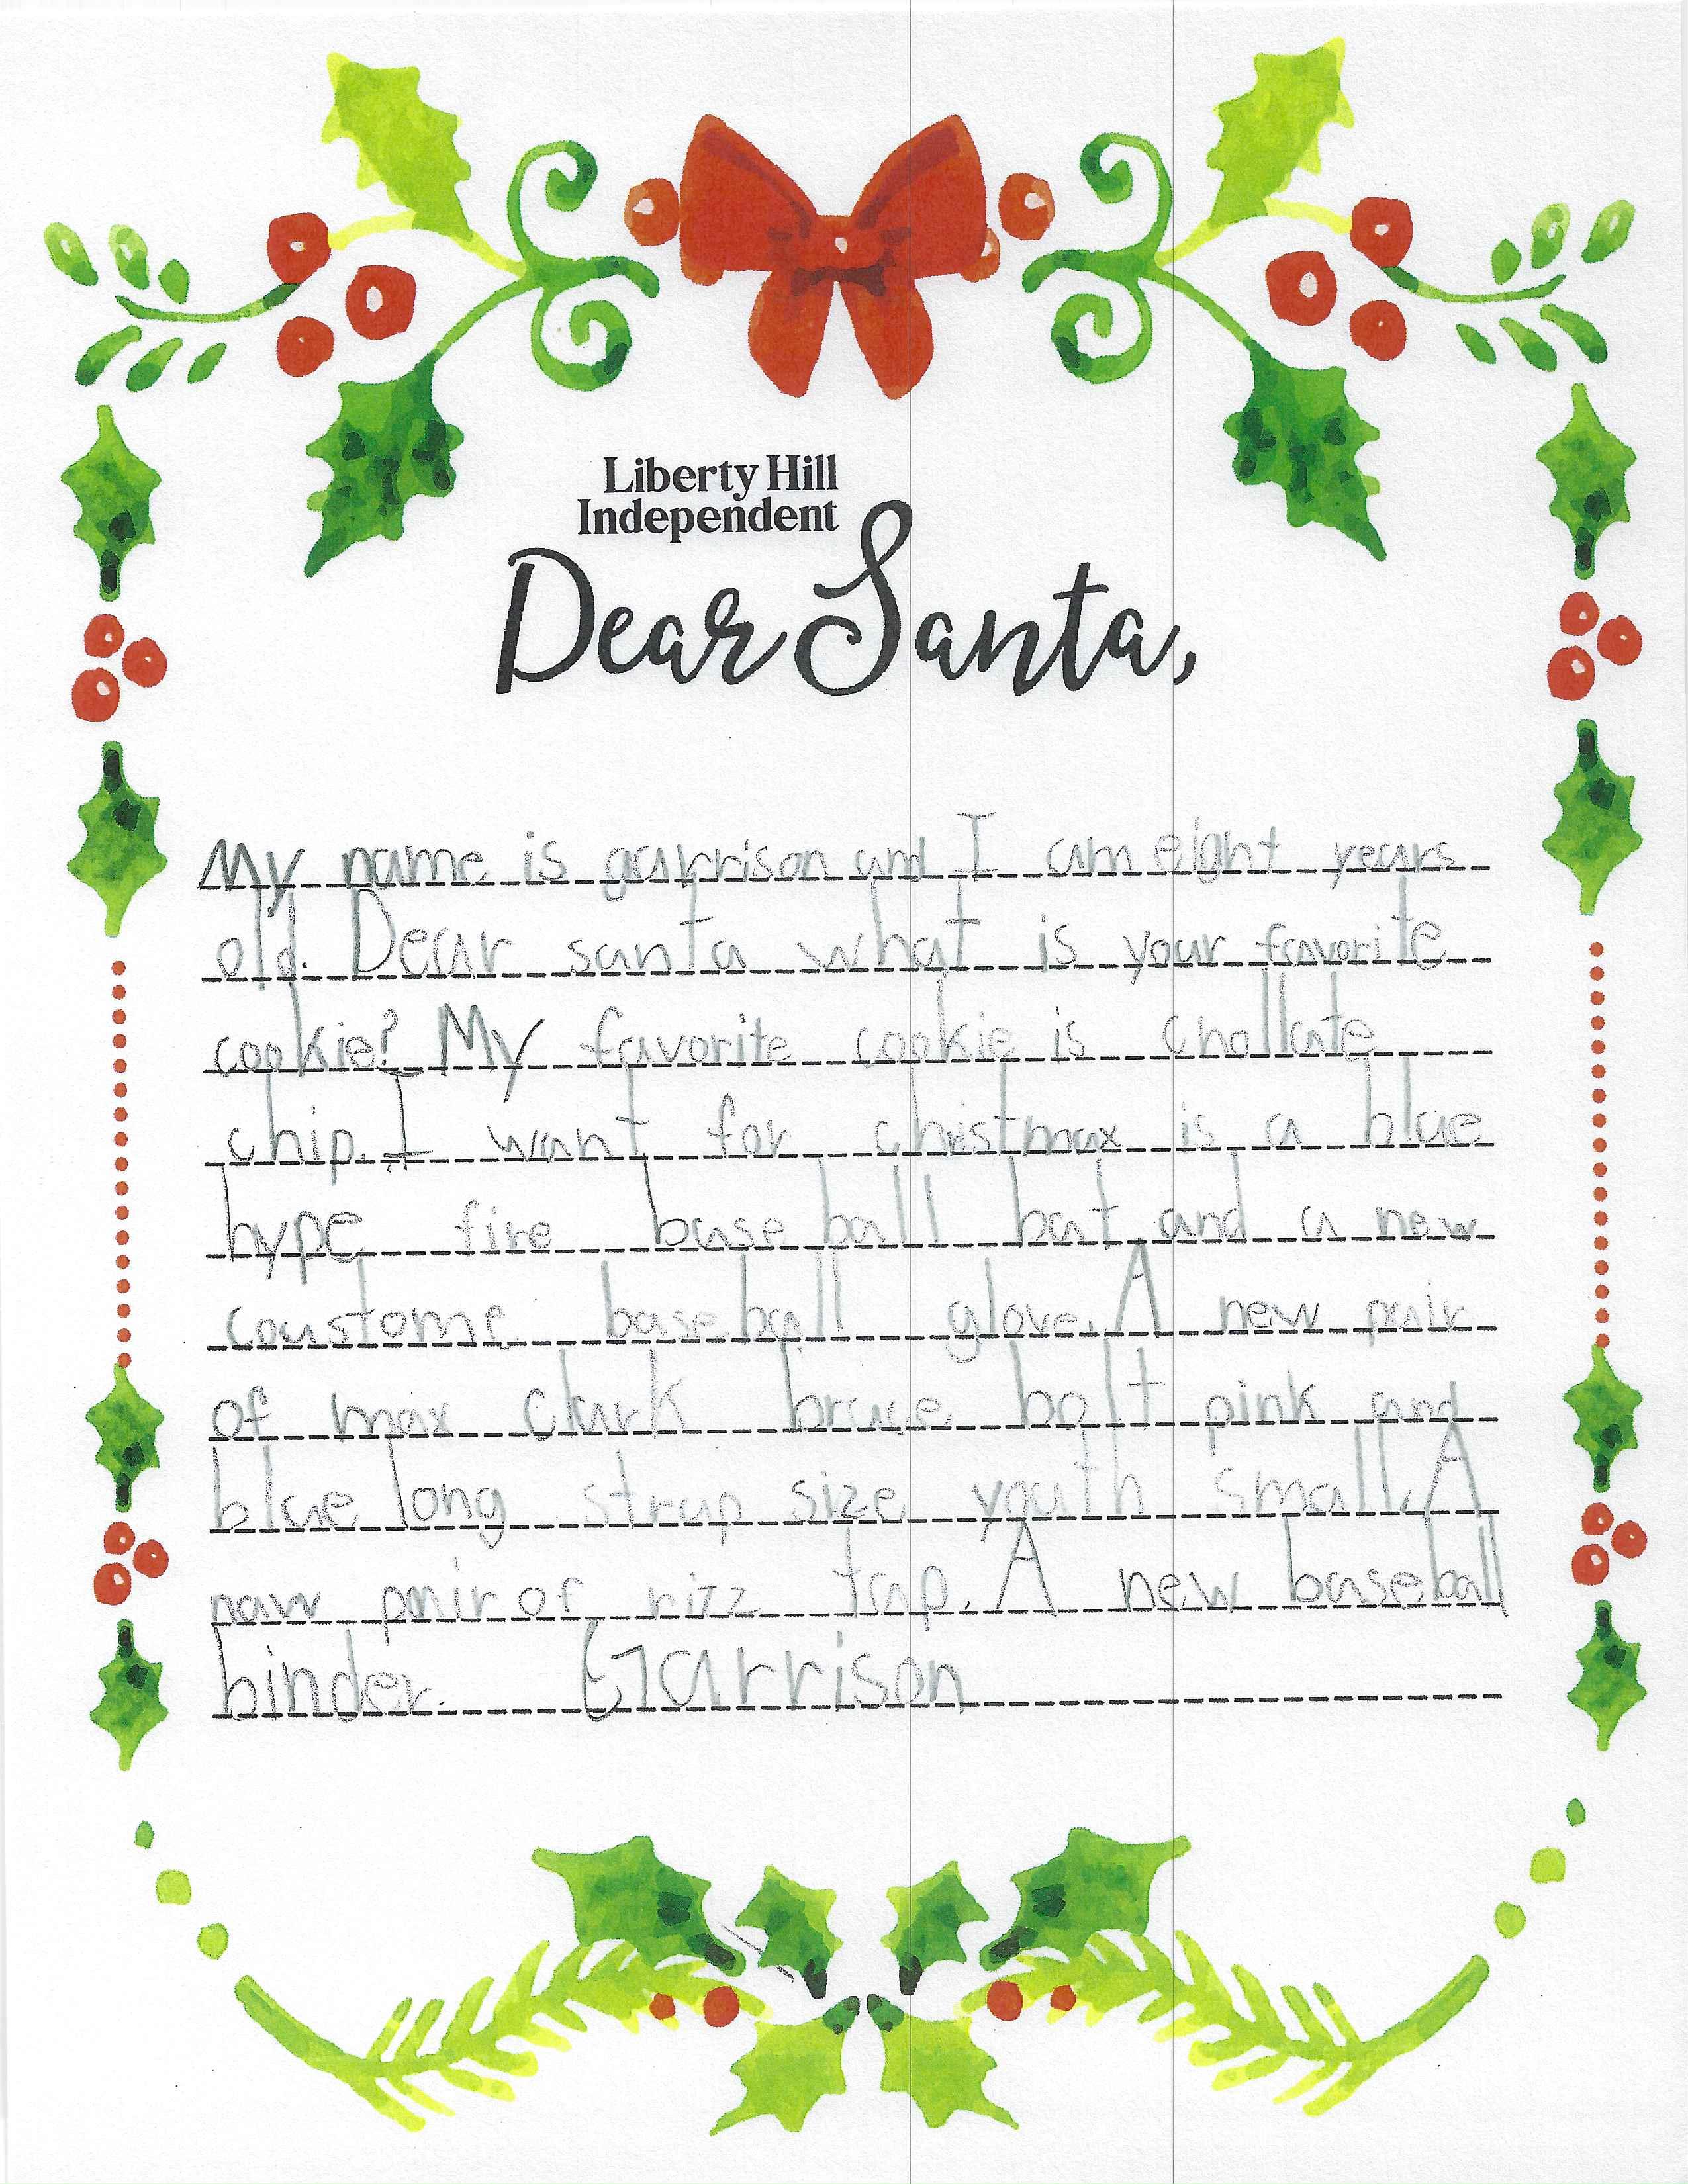 Liberty Hill
Independent
Dear Santa,
My name is garrison and I am eight years
old. Dear santa what is your favorite
cookie? My favorite cookie is chollate
chip. I want for christmax is a blue
hype fire baseball bat and a new
coustome baseball glove. A new pair
of max clark bruce bolt pink and
blue long strap size youth small. A
naw pair of rizz trap. A new baseball
binder. Garrison